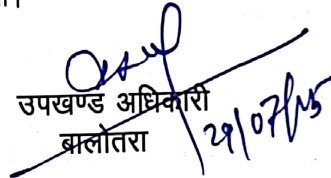 उपखण्ड अधिकारी
बालोतरा
29/07/15